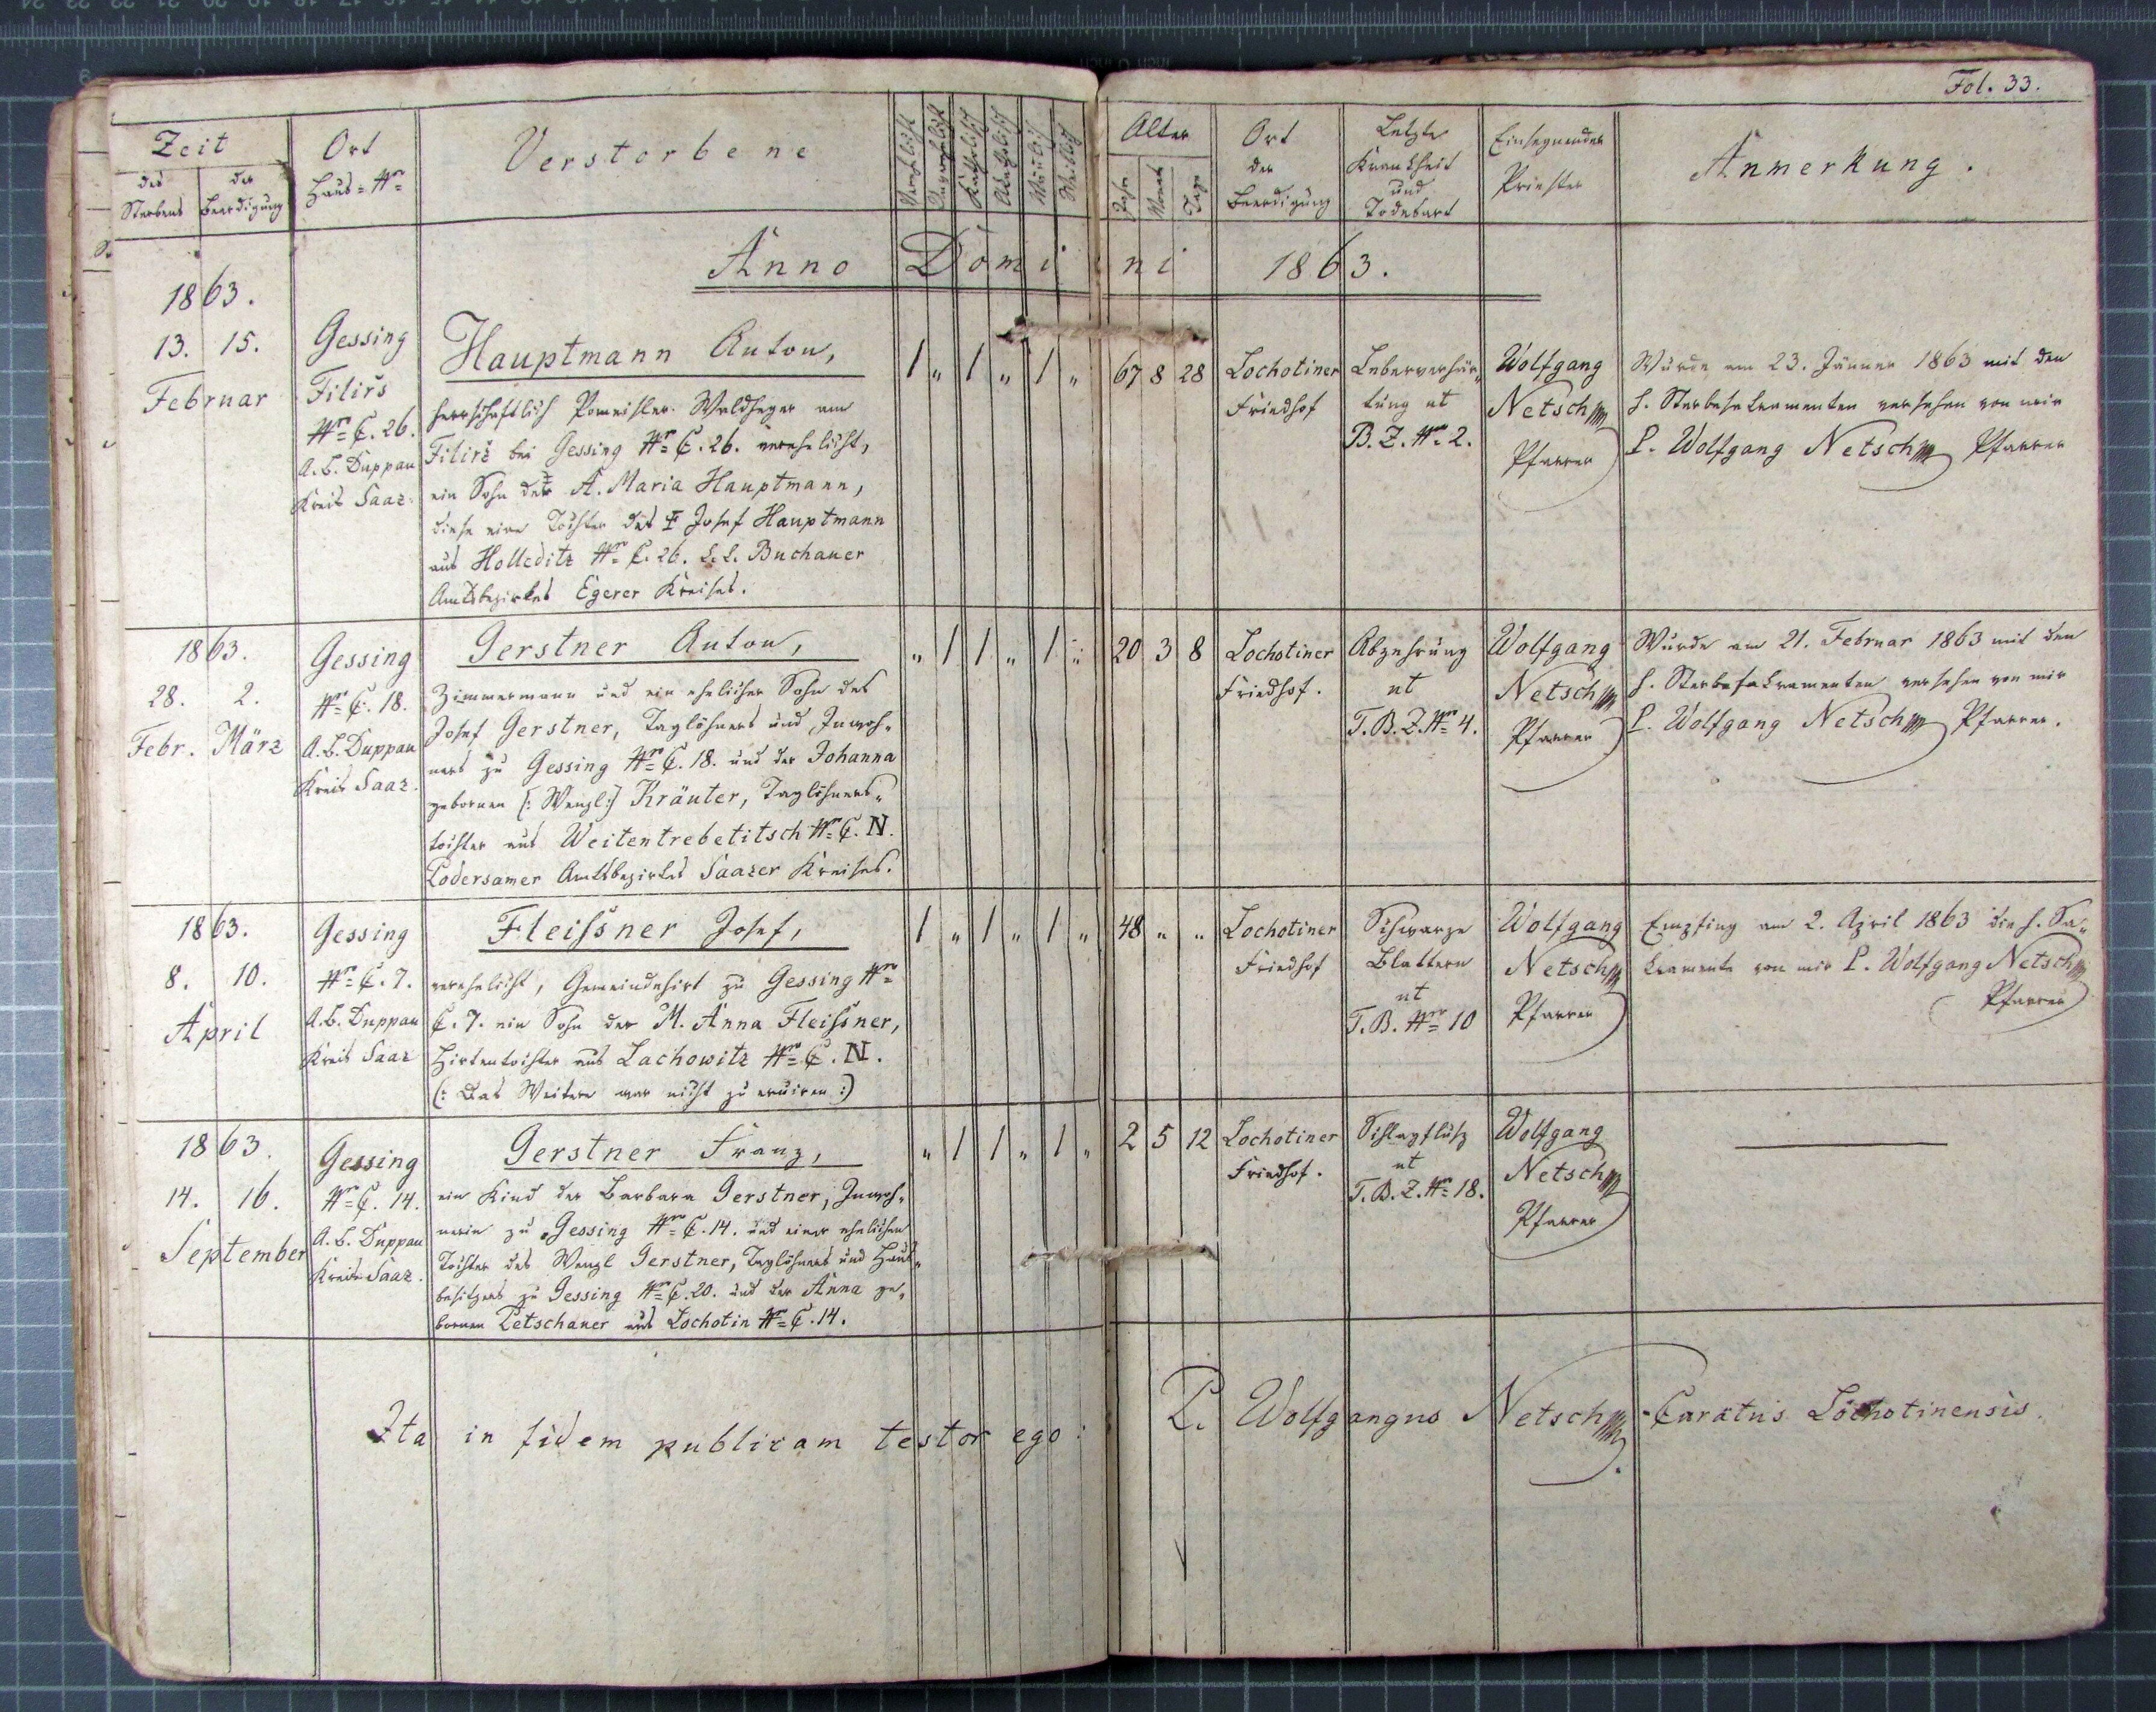 Fol. 33.
Zeit
des Sterbens
der Beerdigung
Ort
Haus-Nro
Verstorbene
Verehlicht
Unverehlicht
Katholisch
Akatholisch
Männlich
Weiblich
Alter
Jahr
Monat
Tage
Ort
der
Beerdigung
Letzte
Krankheit
und
Todesart
Einsegnender
Priester
Anmerkung.
Anno Domini 1863.
1863.
13. 15.
Februar
Gessing
Filirš
Nro C. 26.
A. B. Duppau
Kreis Saaz.
Hauptmann Anton,
herrschaftlich Pomeisler. Waldheger am
Filirš bei Gessing Nro C. 26. verehelicht,
ein Sohn der A. Maria Hauptmann,
diese eine Tochter des † Josef Hauptmann
aus Holleditz Nro C. 26. k. k. Buchauer
Amtsbezirkes Egerer Kreises.
1 „ 1 „ 1 „
67 8 28
Lochotiner
Friedhof
Leberverhär„
tung ut
B. Z. Nro 2.
Wolfgang
Netsch
Pfarrer
Wurde am 23. Jänner 1863 mit den
h. Sterbesakramenten versehen von mir
P. Wolfgang Netsch Pfarrer
1863.
28. 2.
Febr. März
Gessing
Nro C. 18.
A. B. Duppau
Kreis Saaz.
Gerstner Anton,
Zimmermann und ein ehelicher Sohn des
Josef Gerstner, Taglöhners und Inwoh„
ners zu Gessing Nro C. 18. und der Johanna
gebornen (: Wenzl :) Kräuter, Taglöhners„
tochter aus Weitentrebetitsch Nro C. N.
Podersamer Amtsbezirkes Saazer Kreises.
„ 1 1 „ 1 „
20 3 8
Lochotiner
Friedhof.
Abzehrung
ut
T. B. Z. Nro 4.
Wolfgang
Netsch
Pfarrer
Wurde am 21. Februar 1863 mit den
h. Sterbesakramenten versehen von mir
P. Wolfgang Netsch Pfarrer.
1863.
8. 10.
April
Gessing
Nro C. 7.
A. B. Duppau
Kreis Saaz
Fleissner Josef,
verehelicht, Gemeindehirt zu Gessing Nro
C. 7. ein Sohn der M. Anna Fleissner,
Hirtentochter aus Lachowitz Nro C. N.
(: Das Weitere war nicht zu eruiren :)
1 „ 1 „ 1 „
48 „ „
Lochotiner
Friedhof
Schwarze
Blattern
ut
T. B. Nro 10
Wolfgang
Netsch
Pfarrer
Empfing am 2. April 1863 die h. Sa„
kramente von mir P. Wolfgang Netsch
Pfarrer
1863.
14. 16.
September
Gessing
Nro C. 14.
A. B. Duppau
Kreis Saaz.
Gerstner Franz,
ein Kind der Barbara Gerstner, Inwoh„
nerin zu Gessing Nro C. 14. und einer ehelichen
Tochter des Wenzl Gerstner, Taglöhners und Haus„
besitzers zu Gessing Nro C. 20. und der Anna ge„
bornen Petschauer aus Lochotin Nro C. 14.
„ 1 1 „ 1 „
2 5 12
Lochotiner
Friedhof.
Schlagfluß
ut
T. B. Z. Nro 18.
Wolfgang
Netsch
Pfarrer
Ita in fidem publicam testor ego: P. Wolfgangus Netsch Curatus Lochotinensis.